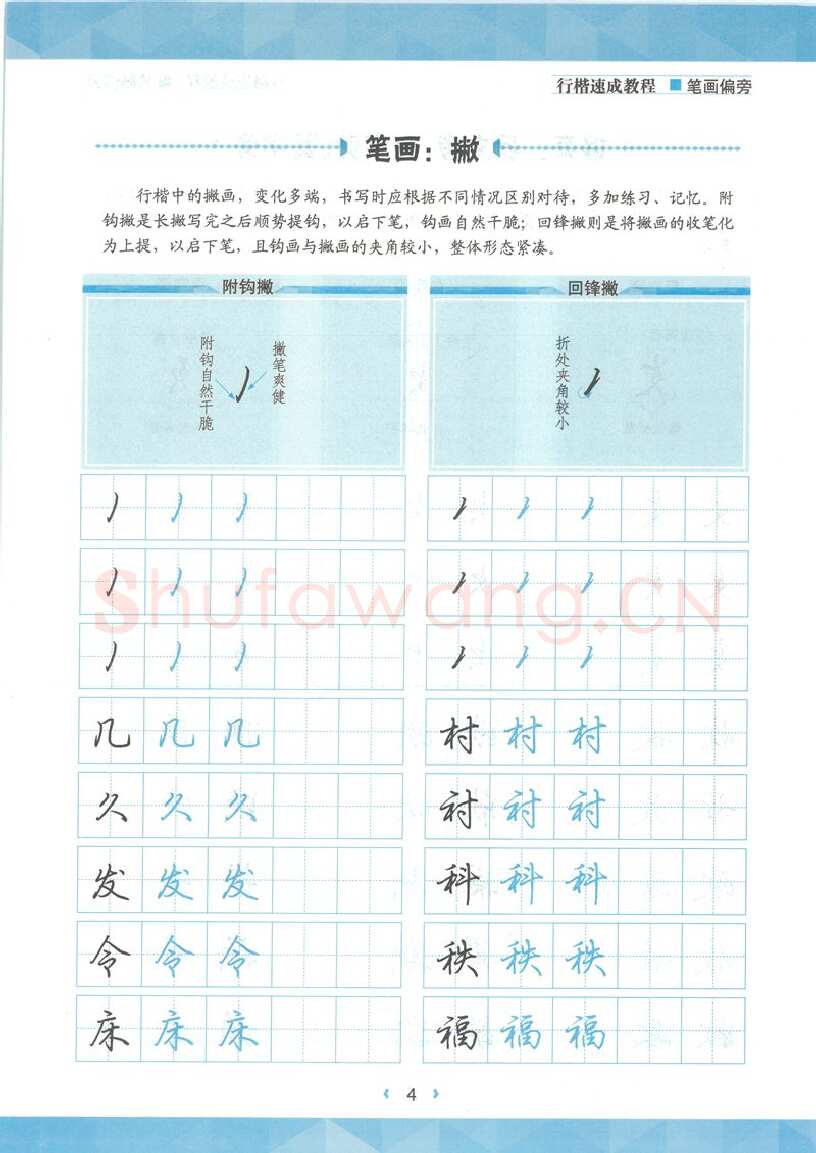 行楷速成教程 ■ 笔画偏旁
笔画：撇
行楷中的撇画，变化多端，书写时应根据不同情况区别对待，多加练习、记忆。附
钩撇是长撇写完之后顺势提钩，以启下笔，钩画自然干脆；回锋撇则是将撇画的收笔化
为上提，以启下笔，且钩画与撇画的夹角较小，整体形态紧凑。
附钩撇
附钩自然干脆
撇笔爽健
几几几
久久久
发发发
令令令
床床床
回锋撇
折处夹角较小
村村村
衬衬衬
科科科
秩秩秩
福福福
Shufawang.CN
4